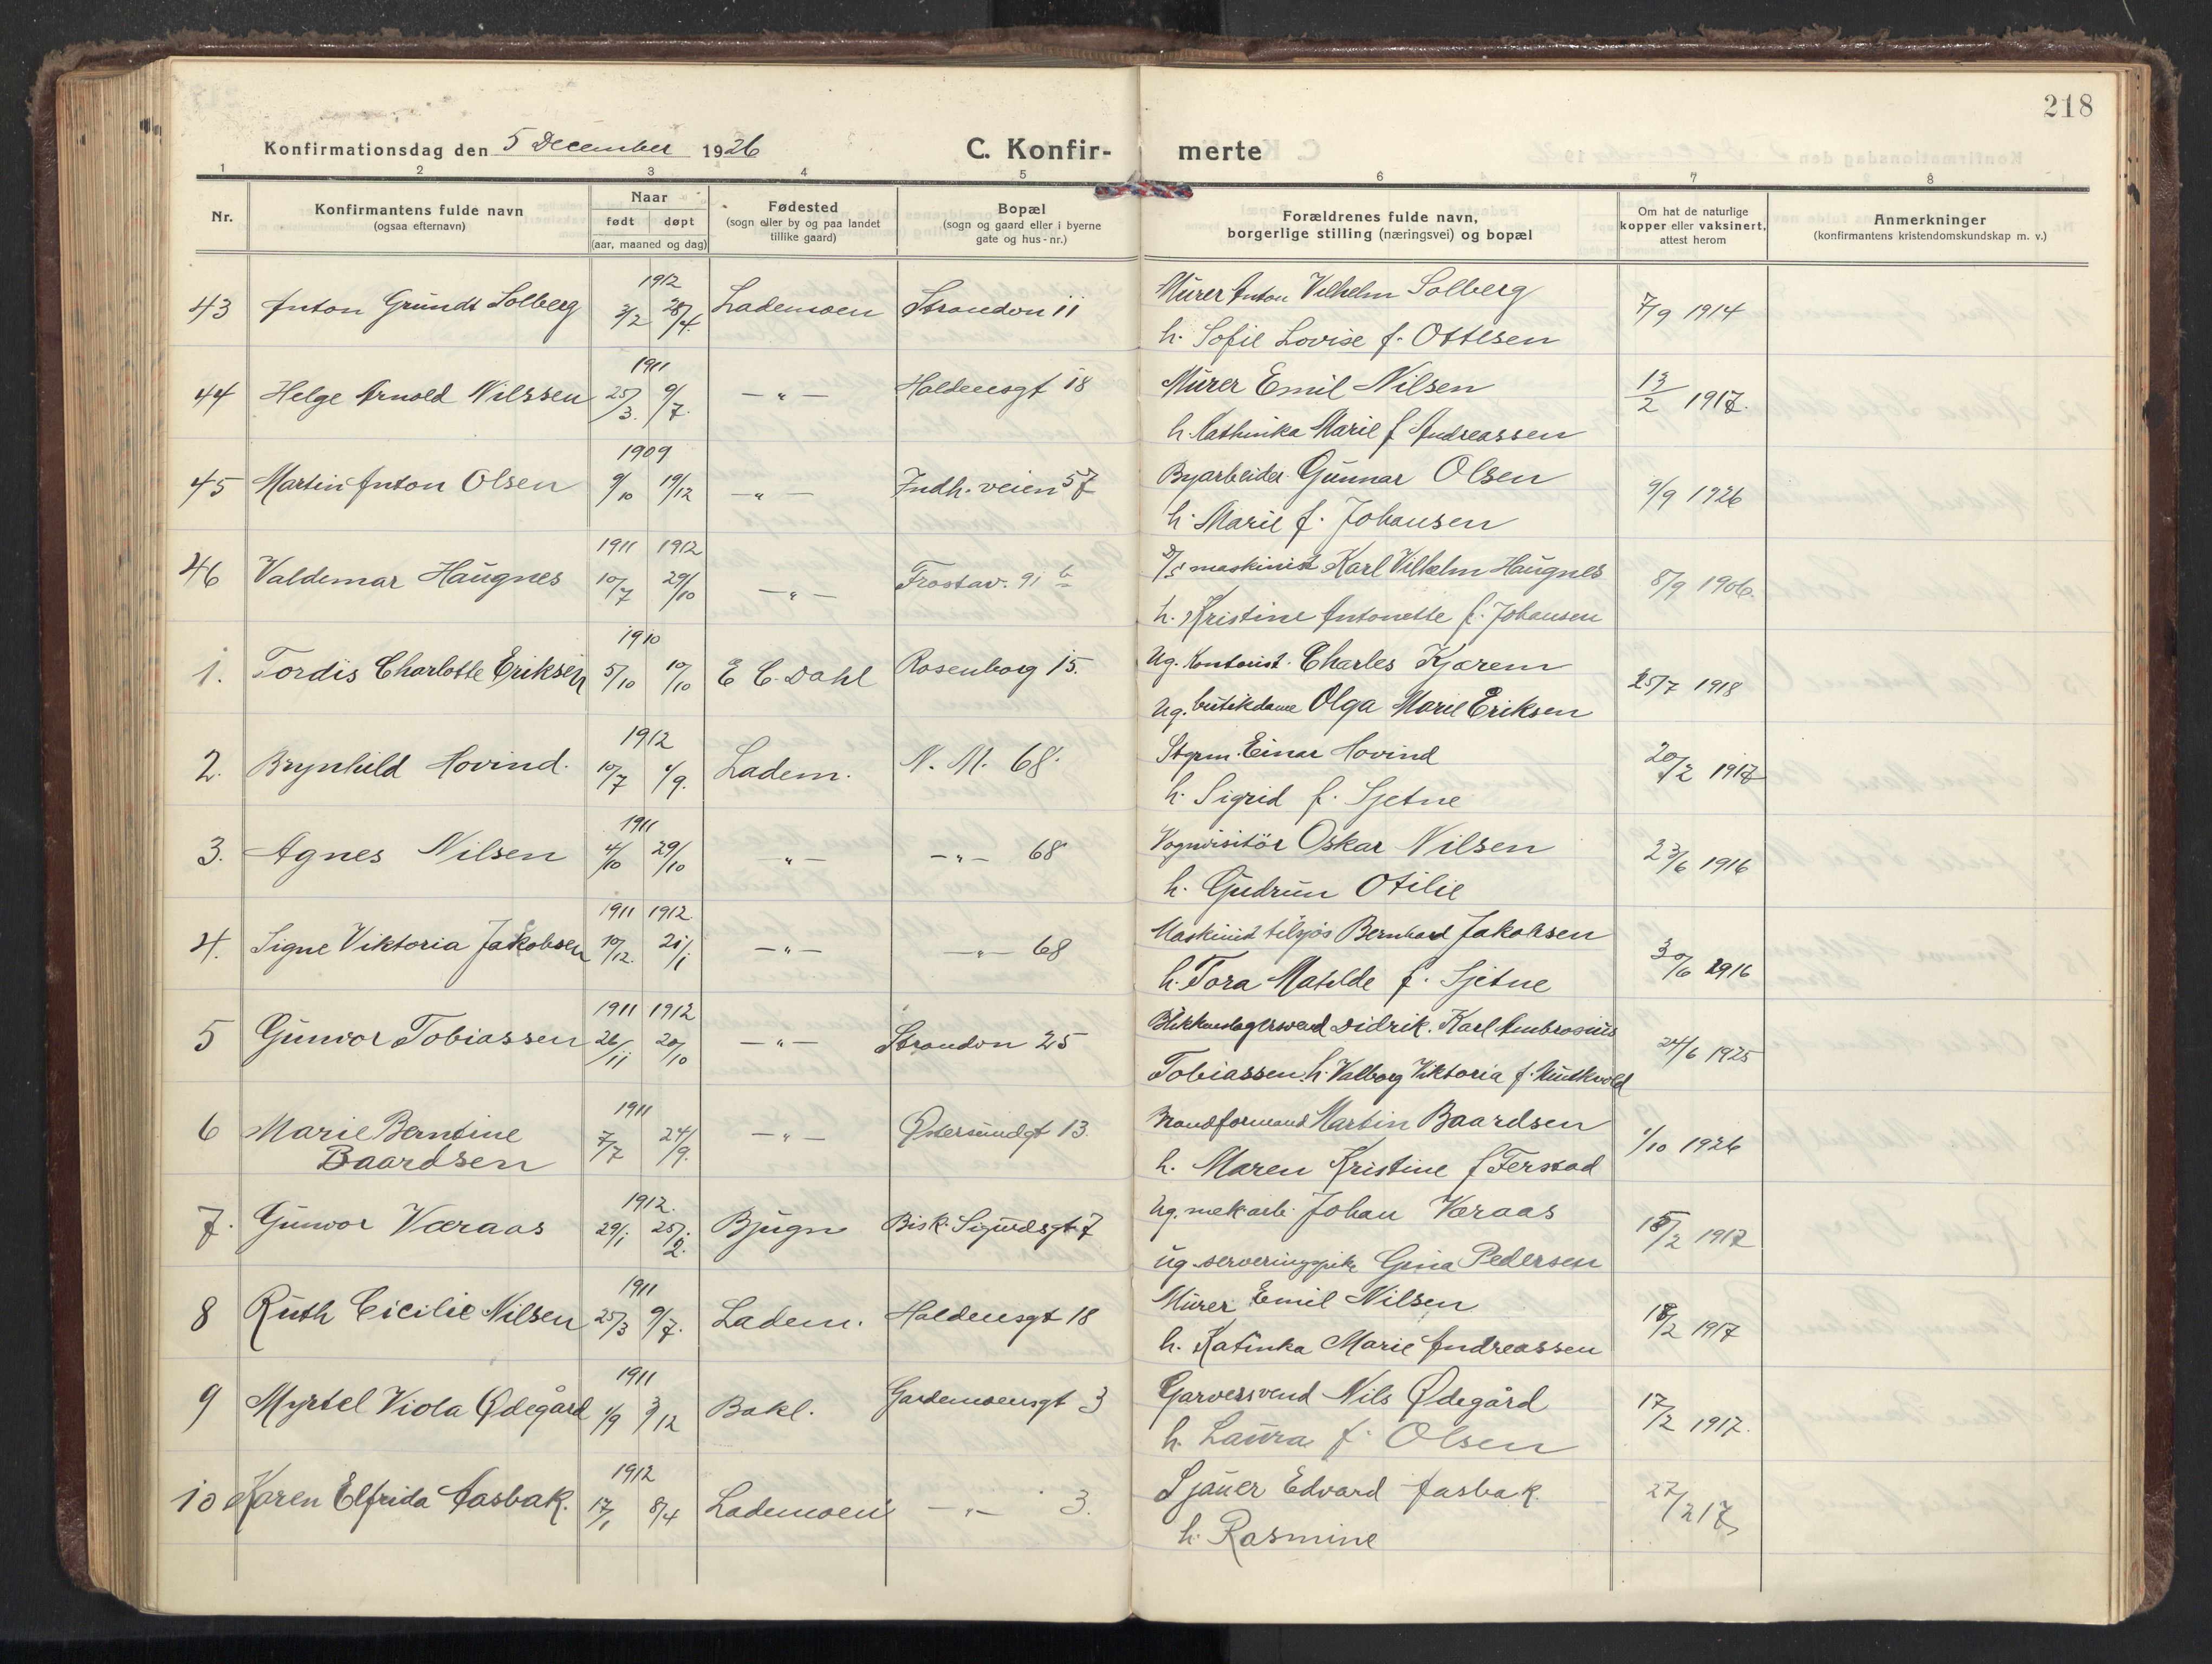 218
Konfirmationsdag den 5 December 1926 C. Konfir- merte
1 2 3 4 5 6 7 8
Nr. Konfirmantens fulde navn (ogsaa efternavn) Naar født døpt (aar, maaned og dag) Fødested (sogn eller by og paa landet tillike gaard) Bopæl (sogn og gaard eller i byerne gate og hus-nr.) Forældrenes fulde navn, borgerlige stilling (næringsvei) og bopæl Om hat de naturlige kopper eller vaksinert, attest herom Anmerkninger (konfirmantens kristendomskundskap m. v.)
1912
43 Anton Grundt Solberg 3/2 28/4. Lademoen Strandvn 11 Murer Anton Vilhelm Solberg 7/9 1914
h. Sofie Lovise f. Ottesen
1911
44 Helge Arnold Nilssen 25/3. 9/7. — " — Haldensgt 18 Murer Emil Nilsen 13/2 1917.
h. Kathinka Marie f Andreassen
1909
45 Martin Anton Olsen 9/10 19/12 — " — Indh. veien 57 Byarbeider Gunnar Olsen 9/9 1926
h. Marie f. Johansen
1911 1912
46 Valdemar Haugnes 10/7 29/10 — " — Frostav. 91 b D/S maskinist Karl Vilhelm Haugnes 8/9 1906.
h. Kristine Antonette f. Johansen
1910
1. Tordis Charlotte Eriksen 5/10 10/10 E C. Dahl Rosenborg 15. Ug. Kontorist. Charles Kjærem 25/7 1918
Ug. butikdame Olga Marie Eriksen
1912
2. Brynhild Hovind. 10/7 1/9. Ladem. N. M. 68. Stgrm. Einar Hovind 20/2 1917
h. Sigrid f. Sjetne
1911
3. Agnes Nilsen 4/10 29/10 — " — — " — 68 Vognvisitör Oskar Nilsen 23/6 1916
h. Gudrun Otilie
1911 1912.
4. Signe Viktoria Jakobsen 10/12. 21/1 — " — — " — 68 Maskinist tilsjøs Bernhard Jakobsen 30/6 1916
h. Tora Matilde f. Sjetne
1911 1912
5 Gunvor Tobiassen 26/11 20/10 — " — Strandvn 25 Blikkenslagersvend Didrik. Karl Ambrosius 24/6 1925
Tobiassen. h. Valborg Viktoria f.
1911
6 Marie Berntine 7/7 24/9. — " — Østersundgt 13. Brandformand Martin Baardsen 1/10 1926
Baardsen h. Maren Kristine f Ferstad
1912.
7. Gunvor Væraas 29/1 25/2. Bjugn Bisk. Sigurdsgt. 7 Ug. mek arb. Johan Væraas 15/2 1917
ug. serveringspike Gina Pedersen
1911
8 Ruth Cicilie Nilsen 25/3 9/7. Ladem. Haldensgt 18 Murer Emil Nilsen 18/2 1917
h. Katinka Marie Andreassen
1911
9 Myrtel Viola Ødegård 4/9 3/12 Bakl. Gardemoensgt 3 Garversvend Nils Ødegård 17/2 1917.
h. Laura f. Olsen
1912
10 Karen Elfrida Aasbak. 17/1 8/4 Lademoen — " — 3. Sjauer Edvard Aasbak. 27/2 17
h. Rasmine